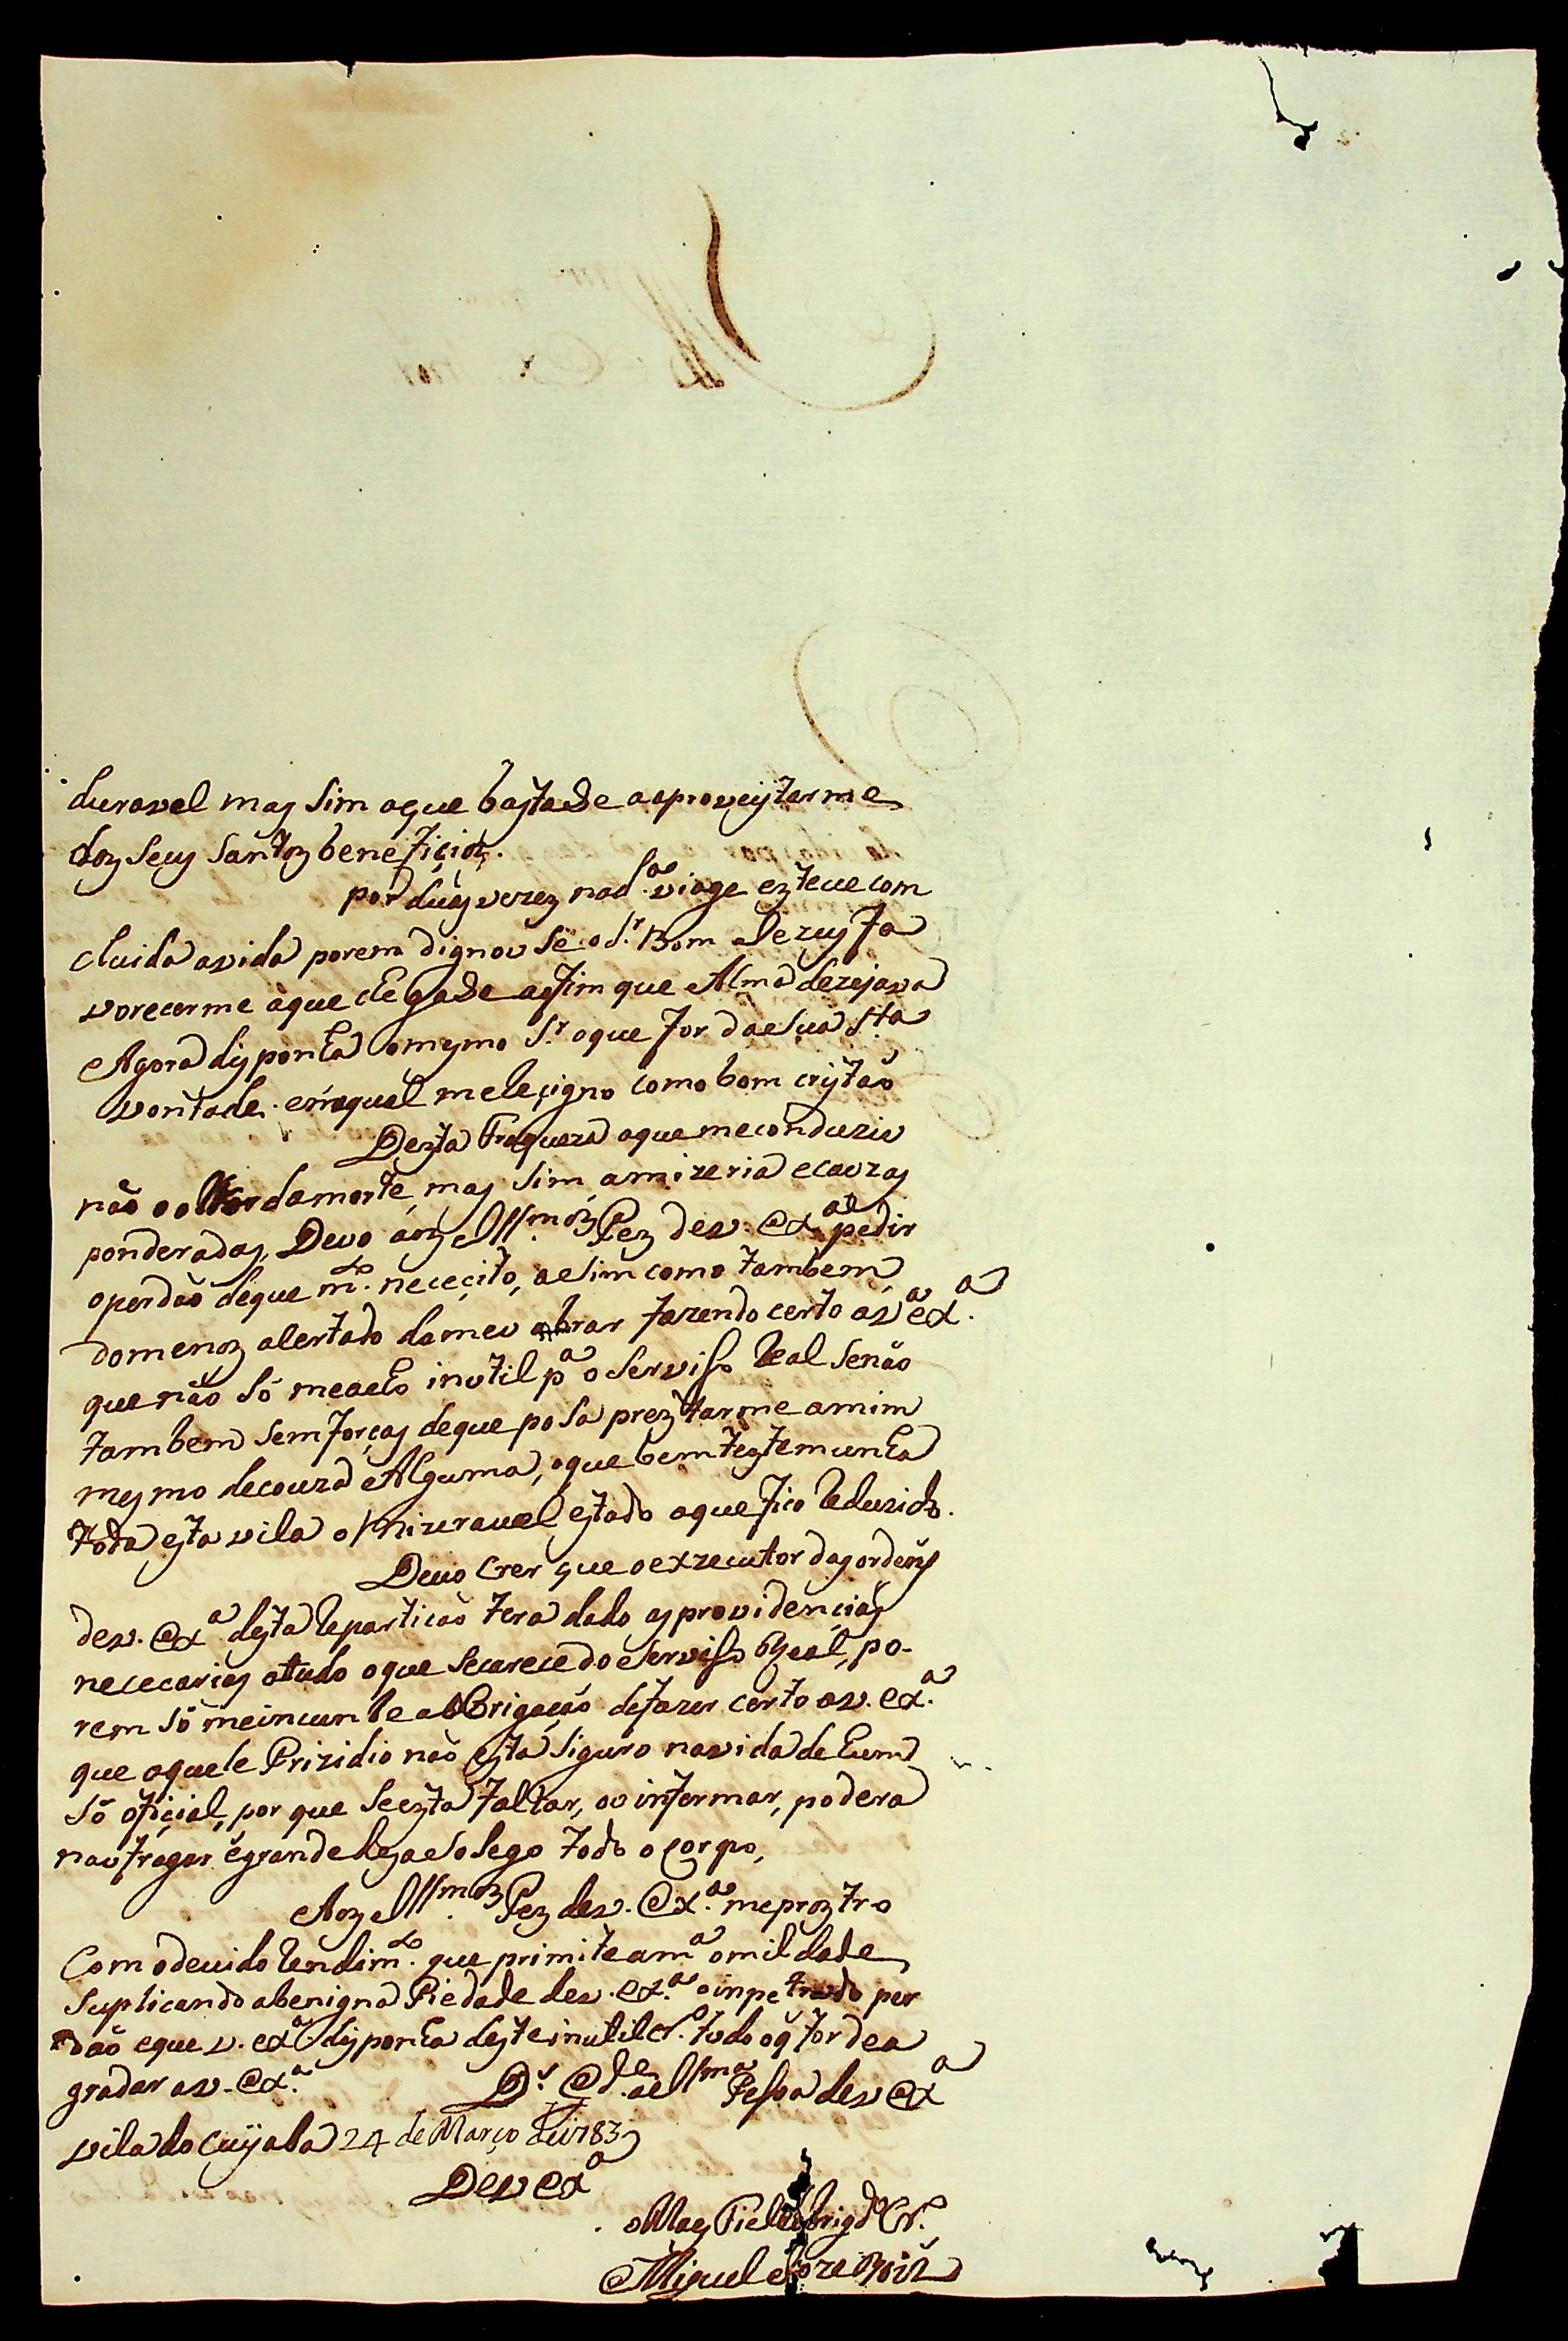 duravel mas Sim aque bastase a aproveytarme
dos seus Santoz beneficioz.
por duas vezez na d.ª viage ezteue com
cluida avida porem dignou Se o S.r Bom Jezus fa
vorecerme aque chegase assim que Alma dezejava
Agora disponha o mesmo S.r oque for da Sua S.ta
vontade. em aqual me Reçigno como bom cristão
Dezta Fraqueza aque meconduzio
não o da morte, mas Sim, amizeria ecauzas
ponderadas, Devo áoz Ill.moz Pez de v. Ex.ª pedir
operdão deque m.to neceçito, aSim como tambem
domenoz alertado do meu obrar fazendo certo av. ex.ª
que não Só meacho inutil p.ª o Serviso Real Senão
tambem Sem forças deque posa preztarme amim
mesmo decouza Alguma, oque bem teztemunha
toda esta vila o mizeravel estado aque fico Reduzido.
Devo Crer que o exzecutor das ordens
de v. Ex.ª desta Repartição tera dado as providençias
nececarias atudo oque Secarece do Serviso Real, po-
rem Só meincumbe aobrigação defazer certo av. ex.ª
que aquele Prizidio não esta Siguro navida de hum
Só ofiçial, por que Se ezta faltar, ou infermar, podera
naufragar egrande todo o Corpo,
Aoz Ill.moz Pez de v. Ex.ª meproztro
Com odeuido Rendim.to que primite am.ª omildade
Suplicando abenigna Piedade de v. ex.ª o inpetrado per
dão eque v. ex.ª disponha deste inutil Cr.º tudo oq̃ for de a
gradar a v. Ex.ª D.s G.de a Ill.ma Pesoa de v Ex.ª
vila do Cuyaba 24 de Março de 1783
De v Ex.ª
o Mays Fiel eobrigd.º Cr.º
Miguel Joze Roiz